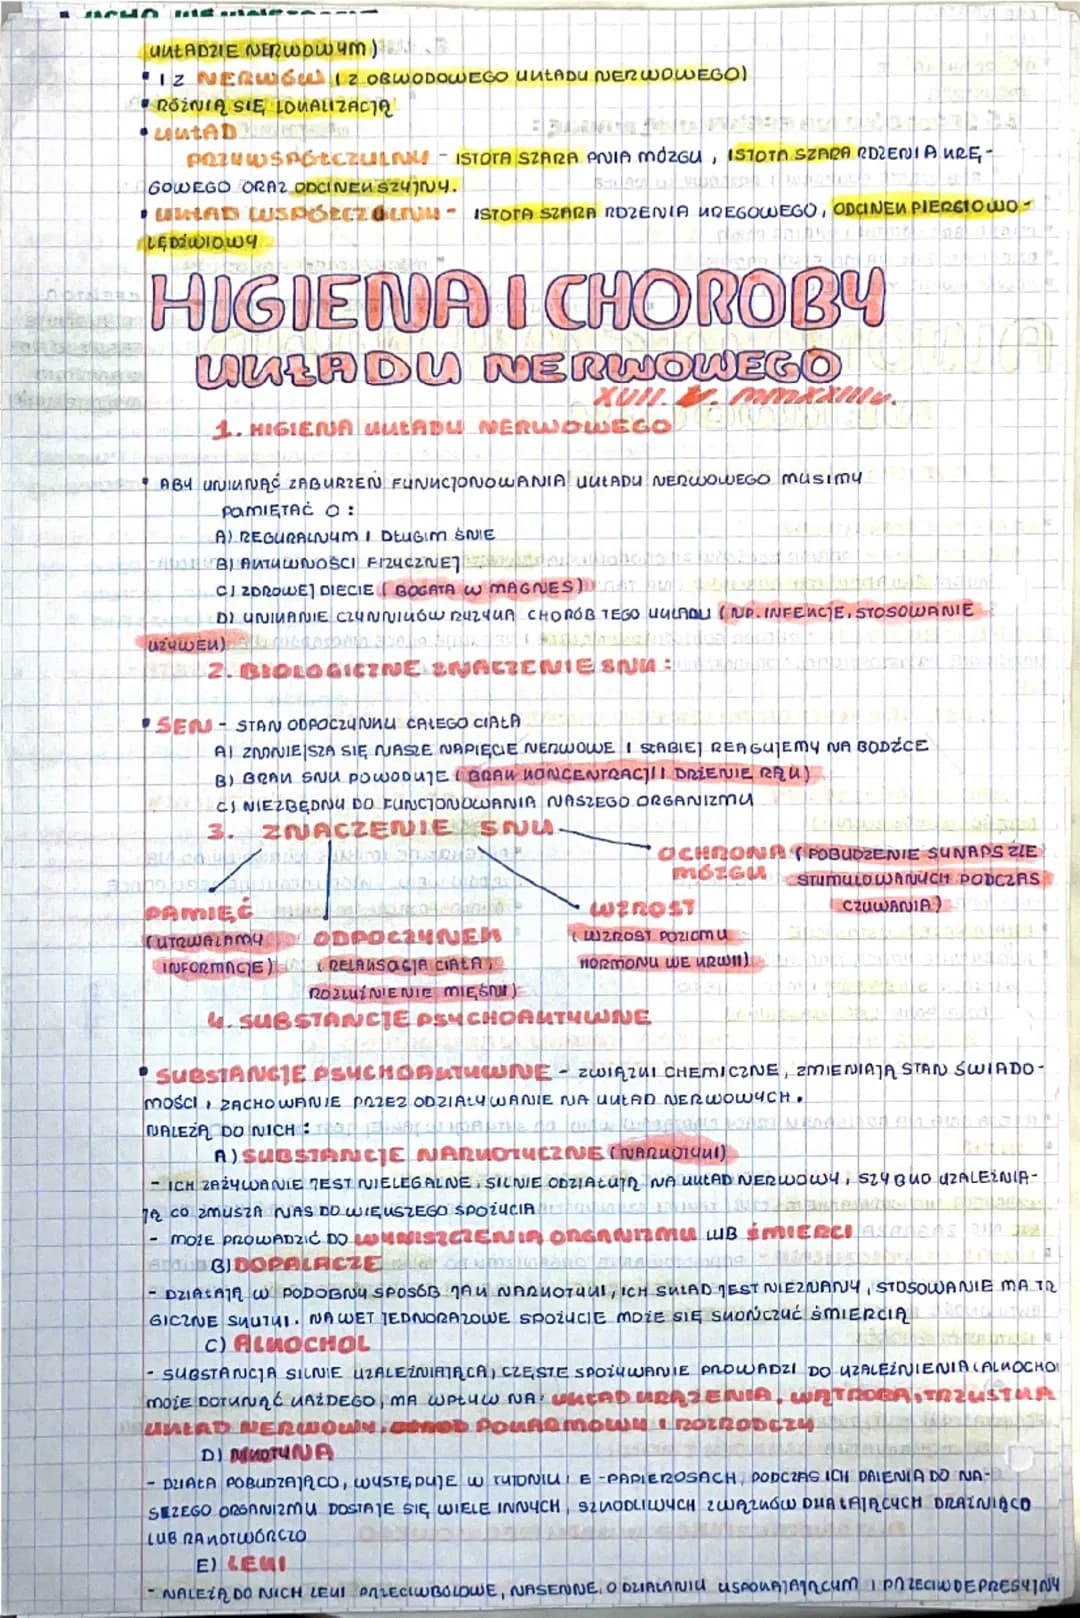 UKŁADZIE NERWOWYM)
• I Z NERWÓW (Z OBWODOWEGO UKŁADU NERWOWEGO)
• RÓŻNIĄ SIĘ LOKALIZACJĄ
• UKŁAD
PRZYWSPÓŁCZULNY - ISTOTA SZARA PNIA MÓZGU, ISTOTA SZARA RDZENIA KRĘ-
GOWEGO ORAZ ODCINEK SZYJNY.
• UKŁAD WSPÓŁCZULNY - ISTOTA SZARA RDZENIA KREGOWEGO, ODCINEK PIERSIOWO-
LĘDŹWIOWY
HIGIENA I CHOROBY
UKŁADU NERWOWEGO
XVII. V. MMXXIIII r.
1. HIGIENA UKŁADU NERWOWEGO
• ABY UNIKNĄĆ ZABURZEŃ FUNKCJONOWANIA UKŁADU NERWOWEGO MUSIMY
PAMIĘTAĆ O:
A) REGURALNYM I DŁUGIM ŚNIE
B) AKTYWNOŚCI FIZYCZNEJ
C) ZDROWEJ DIECIE (BOGATA W MAGNES)
D) UNIKANIE CZYNNIKÓW RYZYKA CHORÓB TEGO UKŁADU (NP. INFEKCJE, STOSOWANIE
UŻYWEK)
2. BIOLOGICZNE ZNACZENIE SNU:
• SEN - STAN ODPOCZYNKU CAŁEGO CIAŁA
A) ZMNIEJSZA SIĘ NASZE NAPIĘCIE NERWOWE I SŁABIEJ REAGUJEMY NA BODŹCE
B) BRAK SNU POWODUJE (BRAK KONCENTRACJI I DRŻENIE RĄK)
C) NIEZBĘDNY DO FUNCJONOWANIA NASZEGO ORGANIZMU
3. ZNACZENIE SNU
OCHRONA (POBUDZENIE SYNAPS ŹLE
MÓZGU STYMULOWANYCH PODCZAS
CZUWANIA)
PAMIĘĆ
(UTRWALAMY
INFORMACJE)
ODPOCZYNEK
(RELAKSACJA CIAŁA,
ROZLUŹNIENIE MIĘŚNI)
WZROST
(WZROST POZIOMU
HORMONU WE KRWI)
4. SUBSTANCJE PSYCHOAKTYWNE
• SUBSTANCJE PSYCHOAKTYWNE - ZWIĄZKI CHEMICZNE, ZMIENIAJĄ STAN ŚWIADO-
MOŚCI I ZACHOWANIE PRZEZ ODZIAŁYWANIE NA UKŁAD NERWOWYCH.
NALEŻĄ DO NICH:
A) SUBSTANCJE NARKOTYCZNE (NARKOTYKI)
- ICH ZAŻYWANIE JEST NIELEGALNE, SILNIE ODZIAŁUJĄ NA UKŁAD NERWOWY, SZYBKO UZALEŻNIA-
JĄ CO ZMUSZA NAS DO WIĘKSZEGO SPOŻYCIA
- MOŻE PROWADZIĆ DO WYNISZCZENIA ORGANIZMU LUB ŚMIERCI
B) DOPALACZE
- DZIAŁAJĄ W PODOBNY SPOSÓB JAK NARKOTYKI, ICH SKŁAD JEST NIEZNANY, STOSOWANIE MA TR
GICZNE SKUTKI. NAWET JEDNORAZOWE SPOŻYCIE MOŻE SIĘ SKOŃCZYĆ ŚMIERCIĄ
C) ALKOCHOL
- SUBSTANCJA SILNIE UZALEŻNIAJĄCA, CZĘSTE SPOŻYWANIE PROWADZI DO UZALEŻNIENIA (ALKOCHOL
MOŻE DOTKNĄĆ KAŻDEGO, MA WPŁYW NA: UKŁAD KRĄŻENIA, WĄTROBA, TRZUSTKA
UKŁAD NERWOWY, POKARMOWY I ROZRODCZY
D) NIKOTYNA
- DZIAŁA POBUDZAJĄCO, WYSTĘPUJE W TYTONIU I E-PAPIEROSACH, PODCZAS ICH PALENIA DO NA-
SZEGO ORGANIZMU DOSTAJE SIĘ WIELE INNYCH, SZKODLIWYCH ZWĄZKÓW DZIAŁAJĄCYCH DRAŻNIĄCO
LUB RAKOTWÓRCZO
E) LEKI
- NALEŻĄ DO NICH LEKI PRZECIWBÓLOWE, NASENNE, O DZIAŁANIU USPOKAJAJĄCYM I PRZECIWDEPRESYJNY